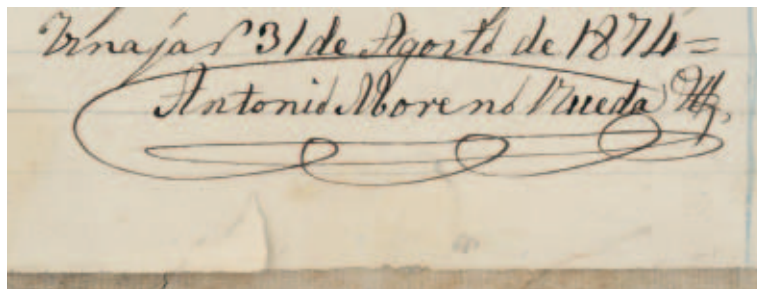 Iznajar 31 de Agosto de 1874=
Antonio Moreno Rueda